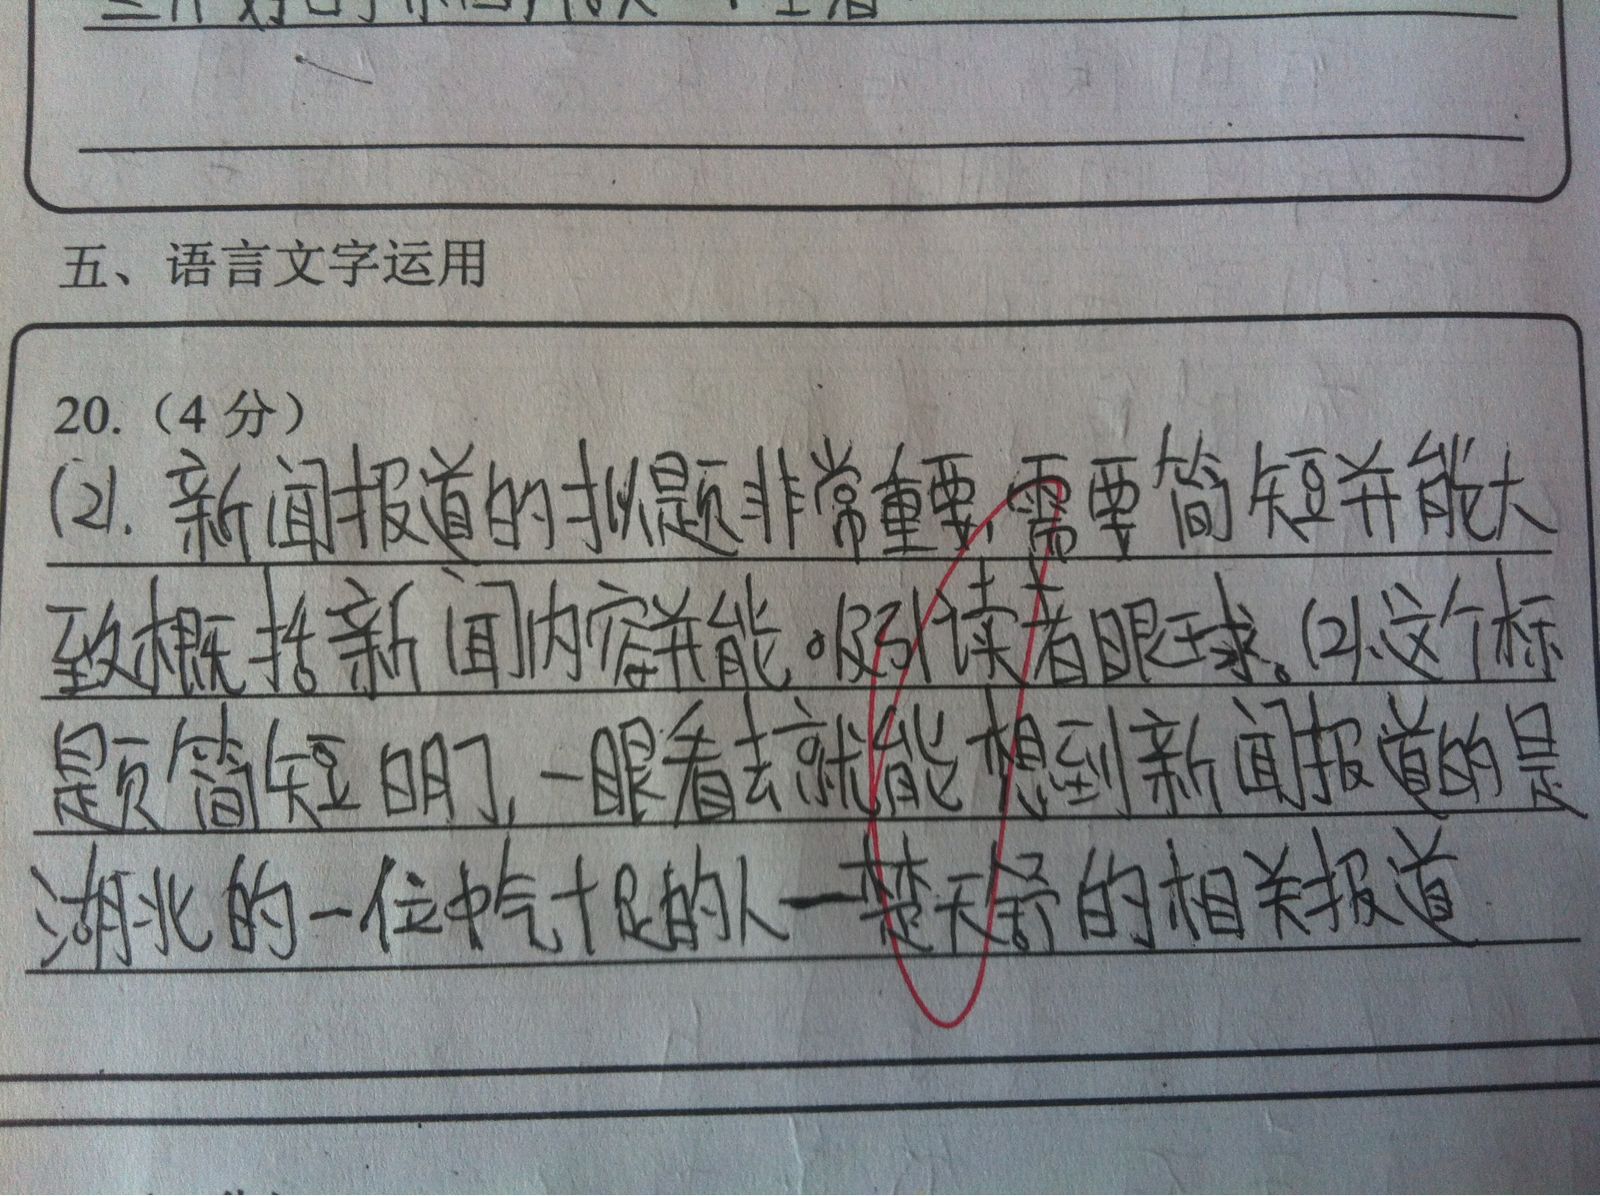 五、语言文字运用
20.（4 分）
(2). 新闻报道的拟题非常重要,需要简短并能大
致概括新闻内容并能。吸引读者眼球。(2)、这个标
题简短明了,一眼看去就能想到新闻报道的是
湖北的一位中气十足的人一楚天舒的相关报道